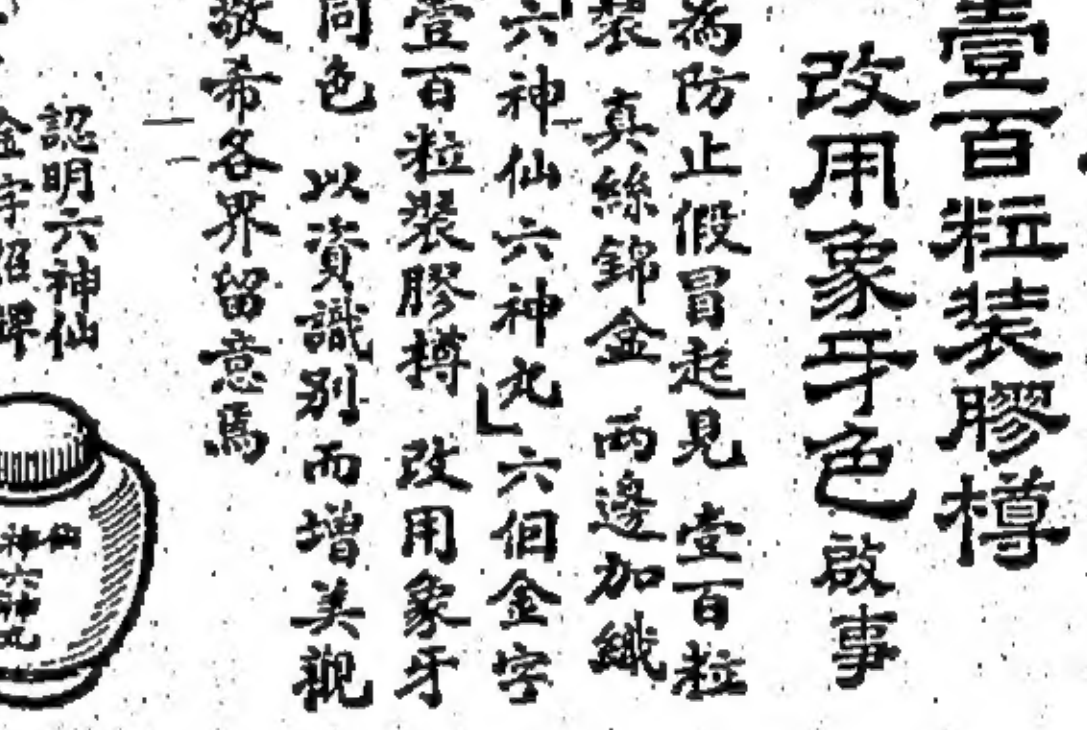 壹百粒装膠樽
改用象牙色啟事
為防止假冒起見 壹百粒
裝 真絲錦盒 両邊加織
六神仙六神丸」六個金字
壹百粒裝膠樽 改用象牙
同色 以資識別而增美觀
敬希各界留意焉
認明六神仙
金字招牌
神仙
六神丸